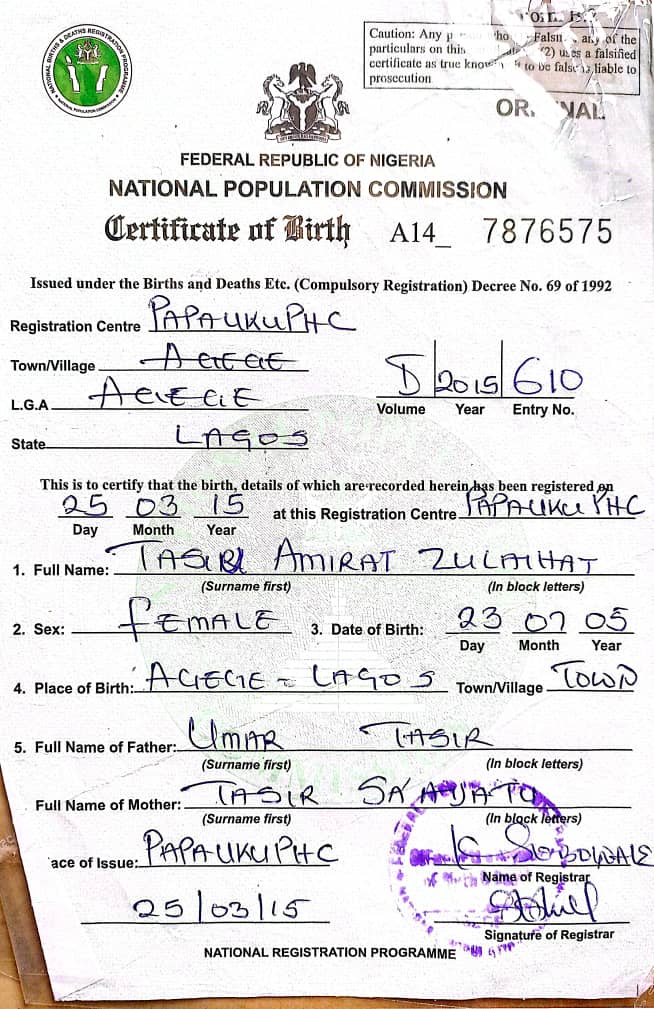 NATIONAL BIRTHS & DEATHS REGISTRATION PROGRAMME
NATIONAL POPULATION COMMISSION
Caution: Any who Falsi any of the
particulars on this (2) uses a falsified
certificate as true know to be false is liable to
prosecution
FEDERAL REPUBLIC OF NIGERIA
NATIONAL POPULATION COMMISSION
Certificate of Birth A14_ 7876575
Issued under the Births and Deaths Etc. (Compulsory Registration) Decree No. 69 of 1992
Registration Centre PAPAUKUPHC
Town/Village AGEGE
L.G.A AGEGE
D 2015 610
Volume Year Entry No.
State LAGOS
This is to certify that the birth, details of which are recorded herein has been registered on
25 03 15 at this Registration Centre PAPAUKU PHC
Day Month Year
1. Full Name: TASIR AMIRAT ZULAIHAT
(Surname first) (In block letters)
2. Sex: FEMALE 3. Date of Birth: 23 07 05
Day Month Year
4. Place of Birth: AGEGE - LAGOS Town/Village TOWN
5. Full Name of Father: UMAR TASIR
(Surname first) (In block letters)
Full Name of Mother: TASIR SA'ADATU
(Surname first) (In block letters)
ace of Issue: PAPAUKUPHC
Name of Registrar
25/03/15
Signature of Registrar
NATIONAL REGISTRATION PROGRAMME